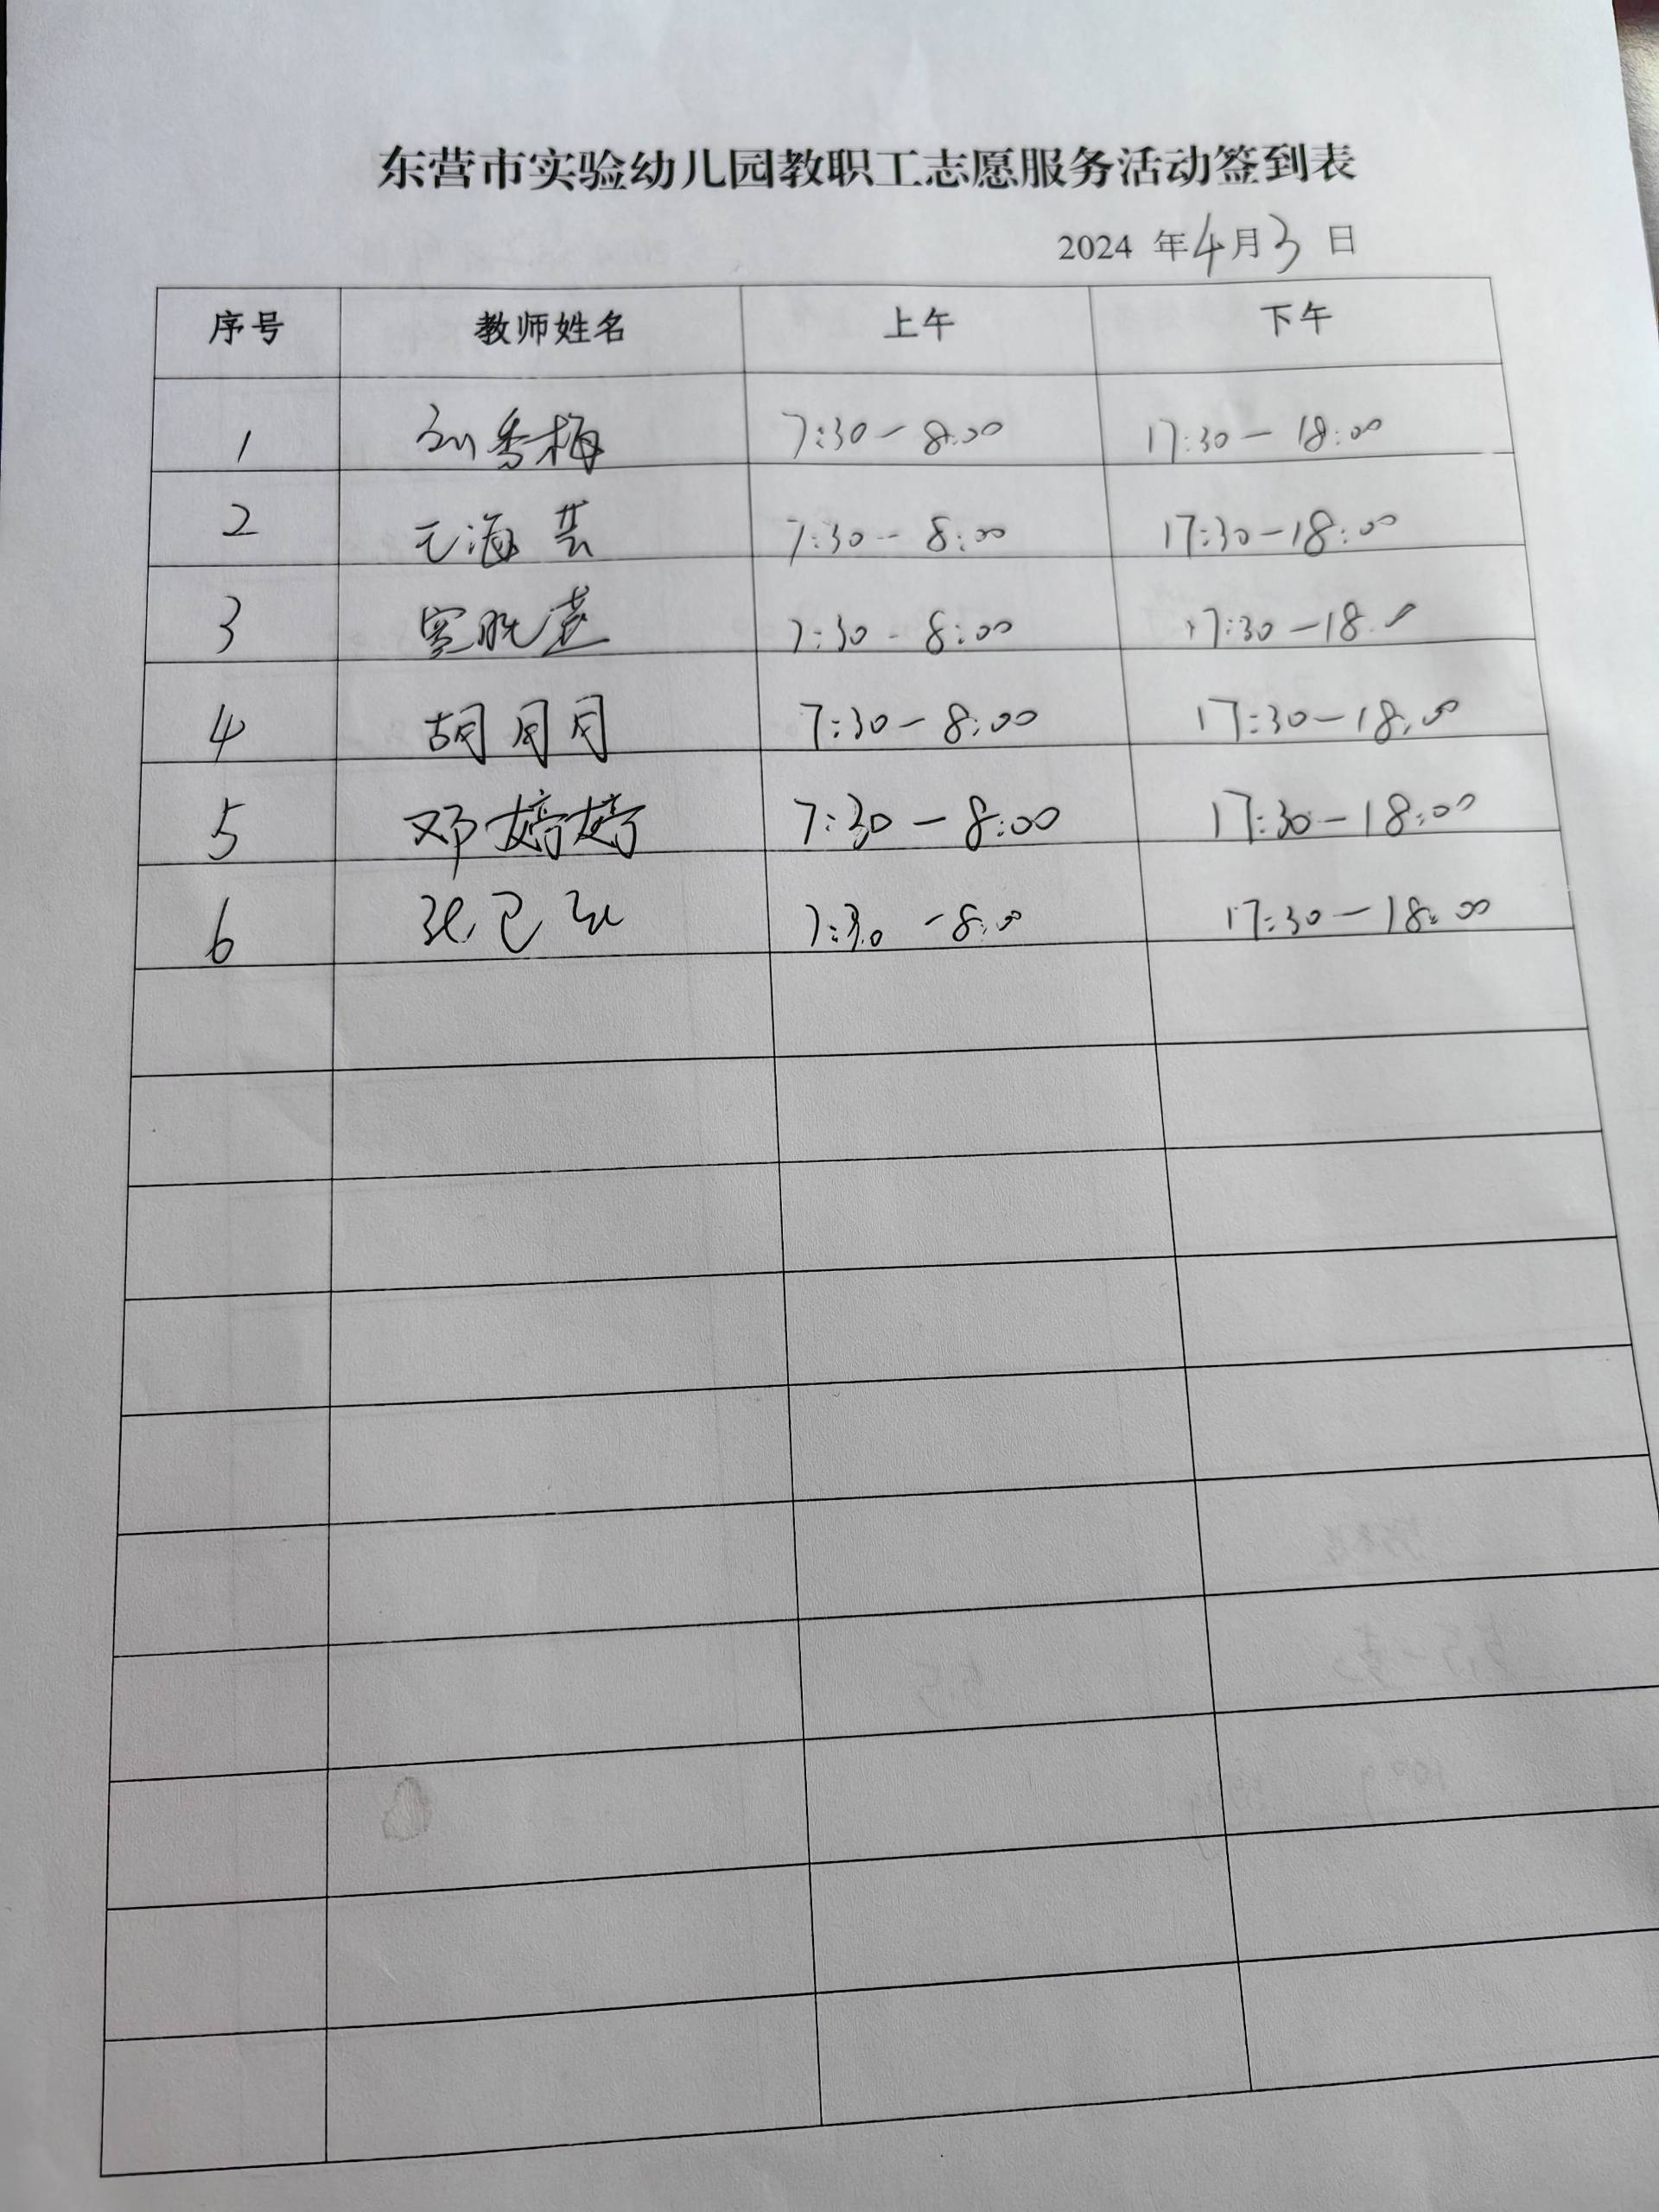 东营市实验幼儿园教职工志愿服务活动签到表
2024 年4月3日
序号 教师姓名 上午 下午
1 刘秀梅 7:30-8:00 17:30-18:00
2 海芸 7:30-8:00 17:30-18:00
3 7:30-8:00 17:30-18
4 胡月月 7:30-8:00 17:30-18:00
5 邓婷婷 7:30-8:00 17:30-18:00
6 7:30-8:00 17:30-18:00